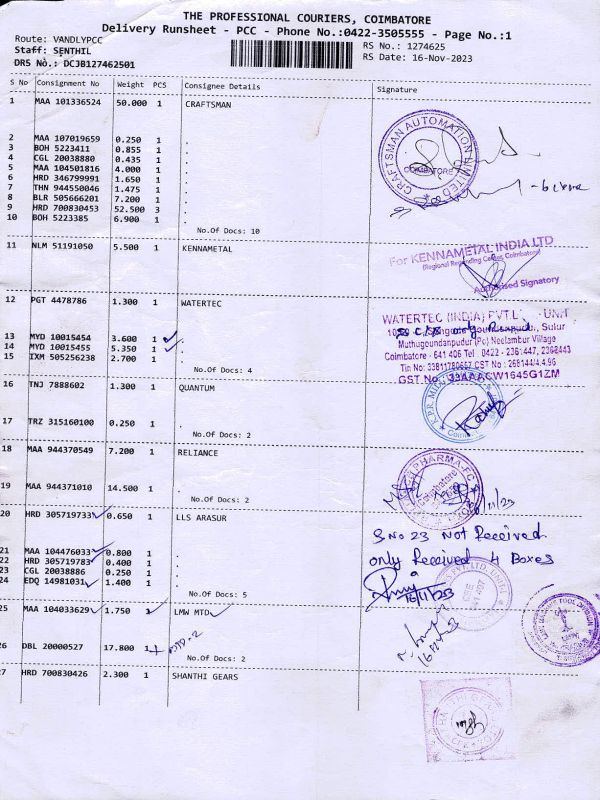 THE PROFESSIONAL COURIERS, COIMBATORE
Delivery Runsheet - PCC - Phone No.:0422-3505555 - Page No.:1
Route: VANDLYPCC
Staff: SENTHIL
DRS No.: DCJB127462501
RS No.: 1274625
RS Date: 16-Nov-2023
S No Consignment No Weight PCS Consignee Details Signature
1 MAA 101336524 50.000 1 CRAFTSMAN
2 MAA 107019659 0.250 1 .
3 BOH 5223411 0.855 1 .
4 CGL 20038880 0.435 1 .
5 MAA 104501816 4.000 1 .
6 HRD 346799991 1.650 1 .
7 THN 944550046 1.475 1 .
8 BLR 505666201 7.200 1 .
9 HRD 700830453 52.500 3 .
10 BOH 5223385 6.900 1 .
No.Of Docs: 10
CRAFTSMAN AUTOMATION LIMITED
COIMBATORE
11 NLM 51191050 5.500 1 KENNAMETAL
For KENNAMETAL INDIA LTD
Authorised Signatory
12 PGT 4478786 1.300 1 WATERTEC
13 MYD 10015454 3.600 1 .
14 MYD 10015455 5.350 1 .
15 IXM 505256238 2.700 1 .
No.Of Docs: 4
WATERTEC (INDIA) PVT.L
Muthugoundanpudur (Po) Neelambur Village
Coimbatore - 641 406 Tel : 0422 -
GST No. 33AAACW1645G1ZM
16 TNJ 7888602 1.300 1 QUANTUM
17 TRZ 315160100 0.250 1 .
No.Of Docs: 2
18 MAA 944370549 7.200 1 RELIANCE
19 MAA 944371010 14.500 1 .
No.Of Docs: 2
20 HRD 305719733 0.650 1 LLS ARASUR
21 MAA 104476033 0.800 1 .
22 HRD 305719783 0.400 1 .
23 CGL 20038886 0.250 1 .
24 EDQ 14981031 1.400 1 .
No.Of Docs: 5
S.No 23 Not Received
only Received 4 Boxes
16/11/23
25 MAA 104033629 1.750 1 LMW MTD
26 DBL 20000527 17.800 1 .
No.Of Docs: 2
27 HRD 700830426 2.300 1 SHANTHI GEARS